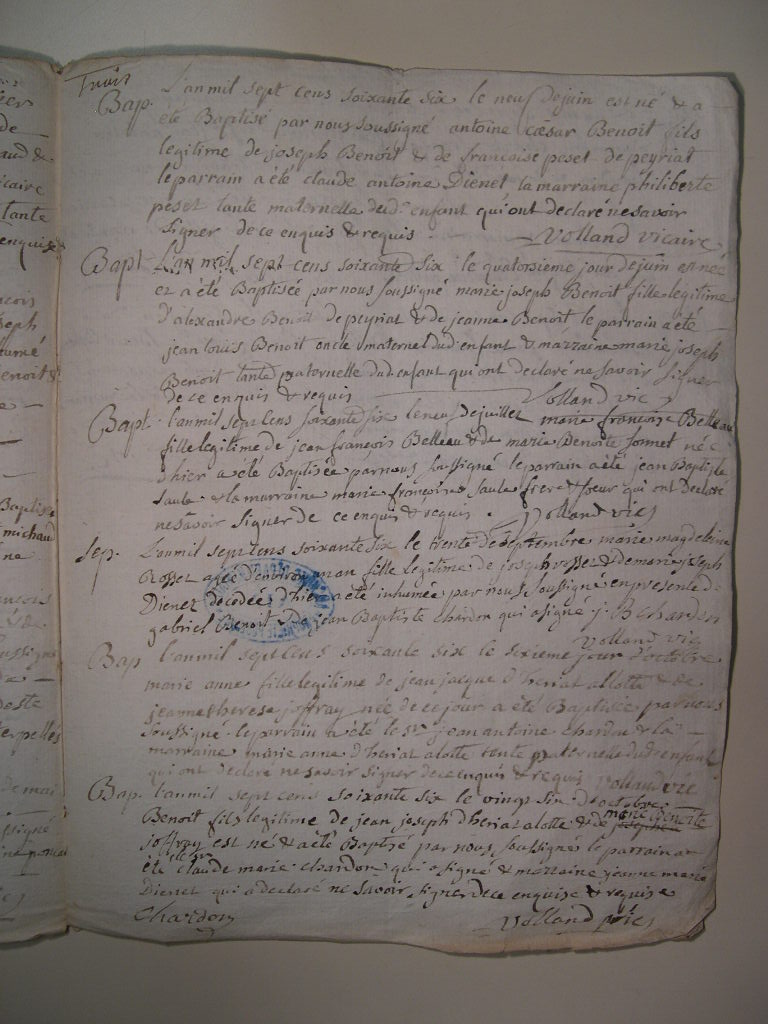 Bap. L'an mil sept cens soixante six le neuf de juin est né & a
été Baptisé par nous soussigné antoine cæsar Benoit fils
legitime de joseph Benoit & de francoise peset de peyriat
le parrain a été claude antoine Dienet la marraine philiberte
peset tante maternelle dud. enfant qui ont declaré ne savoir
signer de ce enquis & requis. Volland vicaire
Bapt L'an mil sept cens soixante six le quatorsieme jour de juin est née
et a été Baptisée par nous soussigné marie joseph Benoit fille legitime
d'alexandre Benoit de peyriat & de jeanne Benoit le parrain a été
jean louis Benoit oncle maternel dud enfant & marraine marie joseph
Benoit tante paternelle dud enfant qui ont declaré ne savoir signer
de ce enquis & requis Volland vic
Bapt l'an mil sept cens soixante six le neuf de juillet marie françoise Belleau
fille legitime de jean françois Belleau & de marie Benoite jonnet née
d'hier a été Baptisée par nous soussigné le parrain a été jean Baptiste
saule & la marraine marie françoise saule frere & soeur qui ont declaré
ne savoir signer de ce enquis & requis. Volland vic
Sep. L'an mil sept cens soixante six le trente de septembre marie magdeleine
Rosset agée d'environ un an fille legitime de joseph rosset & de marie joseph
Dienet decedée d'hier a été inhumée par nous soussigné en presence de
gabriel Benoit & de jean Baptiste chardon qui a signé j. B chardon
Volland vic
Bap l'an mil sept cens soixante six le sixieme jour d'octobre
marie anne fille legitime de jean jacque d'heriat alotte & de
jeanne therese joffray née de ce jour a été Baptisée par nous
soussigné le parrain a été le sr. jean antoine chardon & la
marraine marie anne d'heriat alotte tante paternelle dud. enfant
qui ont declaré ne savoir signer de ce enquis & requis Volland vic
Bap. l'an mil sept cens soixante six le vingt six d'octobre
Benoit fils legitime de jean joseph d'heriat alotte & de marie Benoite
joffray est né & a été Baptisé par nous soussigné le parrain a
été claude marie chardon qui a signé & marraine jeanne marie
Dienet qui a declaré ne savoir signer de ce enquise & requise
Chardon Volland vic